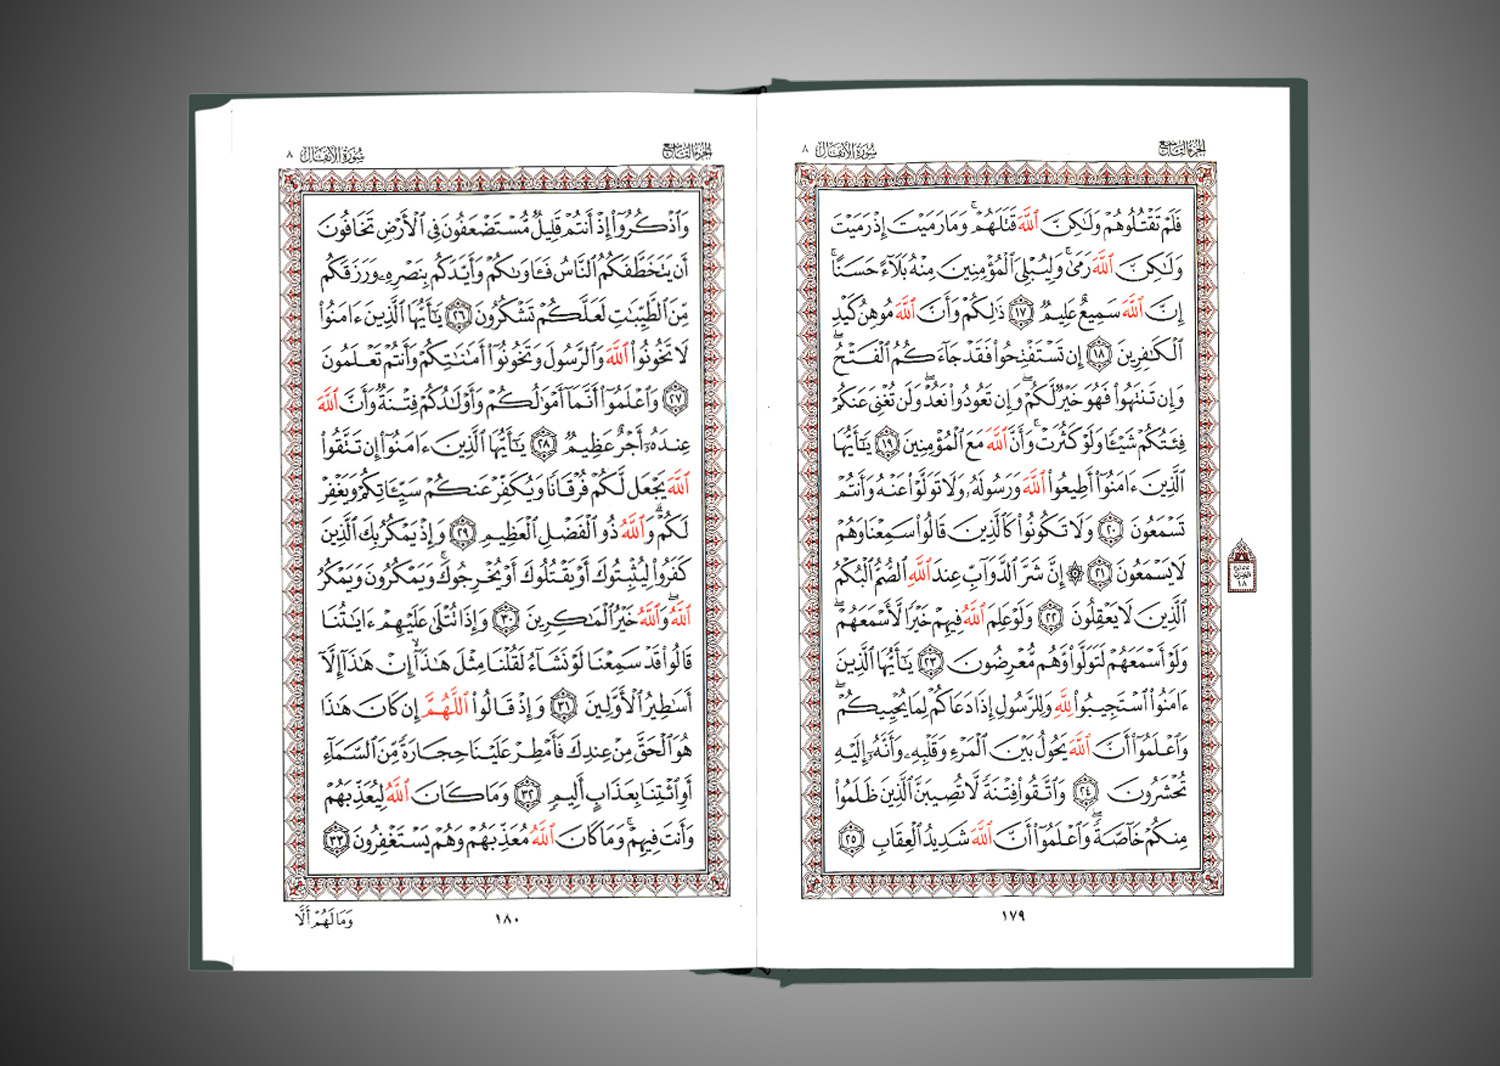 الجزء التاسع
سورة الأنفال ٨
فَلَمْ تَقْتُلُوهُمْ وَلَٰكِنَّ ٱللَّهَ قَتَلَهُمْ ۚ وَمَا رَمَيْتَ إِذْ رَمَيْتَ
وَلَٰكِنَّ ٱللَّهَ رَمَىٰ ۚ وَلِيُبْلِىَ ٱلْمُؤْمِنِينَ مِنْهُ بَلَآءً حَسَنًا ۚ
إِنَّ ٱللَّهَ سَمِيعٌ عَلِيمٌ ١٧ ذَٰلِكُمْ وَأَنَّ ٱللَّهَ مُوهِنُ كَيْدِ
ٱلْكَٰفِرِينَ ١٨ إِن تَسْتَفْتِحُوا۟ فَقَدْ جَآءَكُمُ ٱلْفَتْحُ ۖ
وَإِن تَنتَهُوا۟ فَهُوَ خَيْرٌ لَّكُمْ ۖ وَإِن تَعُودُوا۟ نَعُدْ ۖ وَلَن تُغْنِىَ عَنكُمْ
فِئَتُكُمْ شَيْـًٔا وَلَوْ كَثُرَتْ ۚ وَأَنَّ ٱللَّهَ مَعَ ٱلْمُؤْمِنِينَ ١٩ يَٰٓأَيُّهَا
ٱلَّذِينَ ءَامَنُوٓا۟ أَطِيعُوا۟ ٱللَّهَ وَرَسُولَهُۥ وَلَا تَوَلَّوْا۟ عَنْهُ وَأَنتُمْ
تَسْمَعُونَ ٢٠ وَلَا تَكُونُوا۟ كَٱلَّذِينَ قَالُوا۟ سَمِعْنَا وَهُمْ
لَا يَسْمَعُونَ ٢١ ۞ إِنَّ شَرَّ ٱلدَّوَآبِّ عِندَ ٱللَّهِ ٱلصُّمُّ ٱلْبُكْمُ
ٱلَّذِينَ لَا يَعْقِلُونَ ٢٢ وَلَوْ عَلِمَ ٱللَّهُ فِيهِمْ خَيْرًا لَّأَسْمَعَهُمْ ۖ
وَلَوْ أَسْمَعَهُمْ لَتَوَلَّوا۟ وَّهُم مُّعْرِضُونَ ٢٣ يَٰٓأَيُّهَا ٱلَّذِينَ
ءَامَنُوا۟ ٱسْتَجِيبُوا۟ لِلَّهِ وَلِلرَّسُولِ إِذَا دَعَاكُمْ لِمَا يُحْيِيكُمْ ۖ
وَٱعْلَمُوٓا۟ أَنَّ ٱللَّهَ يَحُولُ بَيْنَ ٱلْمَرْءِ وَقَلْبِهِۦ وَأَنَّهُۥٓ إِلَيْهِ
تُحْشَرُونَ ٢٤ وَٱتَّقُوا۟ فِتْنَةً لَّا تُصِيبَنَّ ٱلَّذِينَ ظَلَمُوا۟
مِنكُمْ خَآصَّةً ۖ وَٱعْلَمُوٓا۟ أَنَّ ٱللَّهَ شَدِيدُ ٱلْعِقَابِ ٢٥
١٧٩
١٨
الجزء التاسع
سورة الأنفال ٨
وَٱذْكُرُوٓا۟ إِذْ أَنتُمْ قَلِيلٌ مُّسْتَضْعَفُونَ فِى ٱلْأَرْضِ تَخَافُونَ
أَن يَتَخَطَّفَكُمُ ٱلنَّاسُ فَـَٔاوَىٰكُمْ وَأَيَّدَكُم بِنَصْرِهِۦ وَرَزَقَكُم
مِّنَ ٱلطَّيِّبَٰتِ لَعَلَّكُمْ تَشْكُرُونَ ٢٦ يَٰٓأَيُّهَا ٱلَّذِينَ ءَامَنُوا۟
لَا تَخُونُوا۟ ٱللَّهَ وَٱلرَّسُولَ وَتَخُونُوٓا۟ أَمَٰنَٰتِكُمْ وَأَنتُمْ تَعْلَمُونَ
٢٧ وَٱعْلَمُوٓا۟ أَنَّمَآ أَمْوَٰلُكُمْ وَأَوْلَٰدُكُمْ فِتْنَةٌ وَأَنَّ ٱللَّهَ
عِندَهُۥٓ أَجْرٌ عَظِيمٌ ٢٨ يَٰٓأَيُّهَا ٱلَّذِينَ ءَامَنُوٓا۟ إِن تَتَّقُوا۟
ٱللَّهَ يَجْعَل لَّكُمْ فُرْقَانًا وَيُكَفِّرْ عَنكُمْ سَيِّـَٔاتِكُمْ وَيَغْفِرْ
لَكُمْ ۗ وَٱللَّهُ ذُو ٱلْفَضْلِ ٱلْعَظِيمِ ٢٩ وَإِذْ يَمْكُرُ بِكَ ٱلَّذِينَ
كَفَرُوا۟ لِيُثْبِتُوكَ أَوْ يَقْتُلُوكَ أَوْ يُخْرِجُوكَ ۚ وَيَمْكُرُونَ وَيَمْكُرُ
ٱللَّهُ ۖ وَٱللَّهُ خَيْرُ ٱلْمَٰكِرِينَ ٣٠ وَإِذَا تُتْلَىٰ عَلَيْهِمْ ءَايَٰتُنَا
قَالُوا۟ قَدْ سَمِعْنَا لَوْ نَشَآءُ لَقُلْنَا مِثْلَ هَٰذَآ ۙ إِنْ هَٰذَآ إِلَّآ
أَسَٰطِيرُ ٱلْأَوَّلِينَ ٣١ وَإِذْ قَالُوا۟ ٱللَّهُمَّ إِن كَانَ هَٰذَا
هُوَ ٱلْحَقَّ مِنْ عِندِكَ فَأَمْطِرْ عَلَيْنَا حِجَارَةً مِّنَ ٱلسَّمَآءِ
أَوِ ٱئْتِنَا بِعَذَابٍ أَلِيمٍ ٣٢ وَمَا كَانَ ٱللَّهُ لِيُعَذِّبَهُمْ
وَأَنتَ فِيهِمْ ۚ وَمَا كَانَ ٱللَّهُ مُعَذِّبَهُمْ وَهُمْ يَسْتَغْفِرُونَ ٣٣
١٨٠
وَمَا لَهُمْ أَلَّا